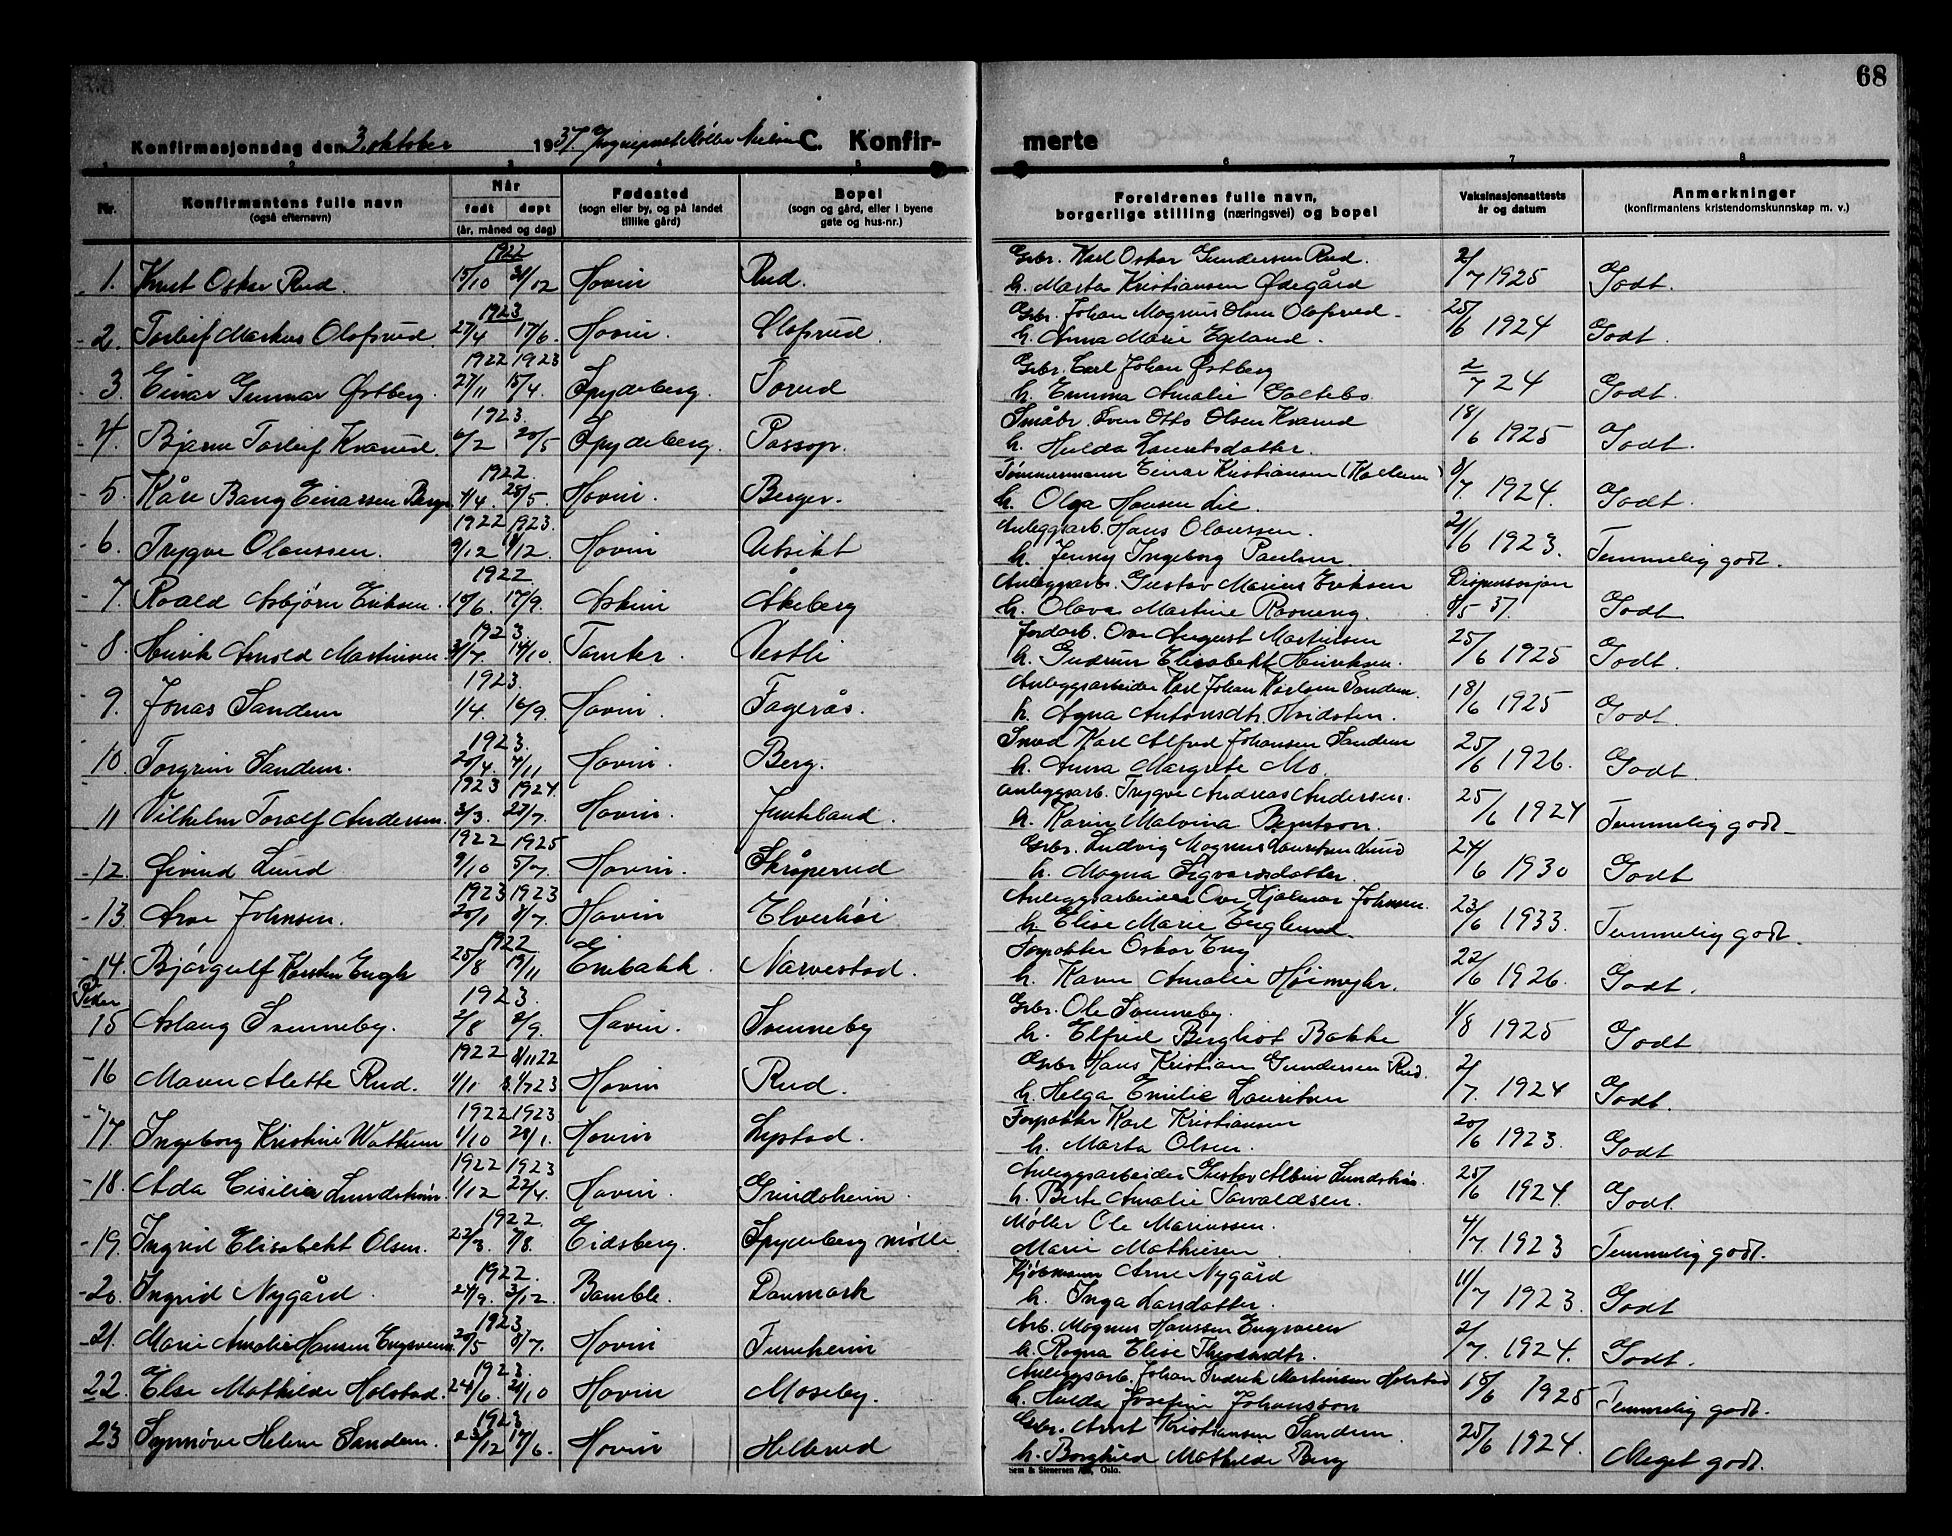 68
Konfirmasjonsdag den 3 oktober 1937. Sogneprest Møller Nielsen C. Konfirmerte
1 2 3 4 5 6 7 8
Nr. Konfirmantens fulle navn (også efternavn) Når født døpt (år, måned og dag) Fødested (sogn eller by, og på landet tillike gård) Bopel (sogn og gård, eller i byene gate og hus-nr.) Foreldrenes fulle navn, borgerlige stilling (næringsvei) og bopel Vaksinasjonsattests år og datum Anmerkninger (konfirmantens kristendomskunnskap m. v.)
1922 Grbr. Karl Oskar Gundersen Rud.
1. Knut Oskar Rud. 15/10 31/12 Hovin Rud. h. Marta Kristiansen Ødegård 2/7 1925 Godt.
1923 Grbr. Johan Magnus Olsen Olofsrud
2. Torleif Markus Olofsrud 27/4 17/6. Hovin. Olofsrud h. Anna Marie Egeland. 25/6 1924 Godt.
1922 1923 Grbr. Carl Johan Østberg
3. Einar Gunnar Østberg. 27/11 15/4. Spydeberg. h. Emma Amalie 2/7 24 Godt.
1923. Småbr. Sven Otto Olsen Knarud
4. Bjarne Torleif Knarud. 6/2 20/5 Spydeberg. Passop. h. Hulda Lauritsdatter. 18/6 1925 Godt.
1922. Tømmermann Einar Kristiansen
5. Kåre Bang Einarssen 4/4. 28/5. Hovin. Berger. h. Olga Hansen Lie 8/7. 1924. Godt.
1922 1923. Anleggsarb. Hans Olaussen.
6. Trygve Olaussen. 9/12 Hovin Utsikt h. Jenny Ingeborg Paulsen. 21/6 1923. Temmelig godt.
1922. Anleggsarb. Gustav Marius Eriksen Dispensasjon
7. Roald Asbjørn Eriksen. 10/6. 17/9. Askim Åkeberg h. Olava Martine 8/5 37. Godt
1923. Jordarb. Ove August Martinsen
8. Henrik Arnold Martinsen 3/7. 14/10. Tomter. Vestli h. Gudrun Elisabeht Henriksen. 25/6 1925 Godt.
1923. Anleggsarbeider Karl Johan Karlsen Sandem.
9. Jonas Sandem 1/4. 16/9. Hovin. Fagerås. h. Agna Antonsdtr. Hvidsten. 18/6 1925 Godt.
1923. Smed Karl Alfred Johansen Sandem
10. Torgrim Sandem. 20/4. 4/11 Hovin. Berg. h. Anna Margrete Mo. 25/6 1926. Godt.
1923 1924. Anleggsarb. Trygve Andreas Andersen.
11 Vilhelm Toralf Andersen. 3/3. 27/7. Hovin. h. Karin Malvina Berntson. 25/6 1924 Temmelig godt.
1922 1925 Grbr. Ludvig Magnus Lauritsen Lund
12. Øivind Lund 9/10 5/7. Hovin. Skråperud h. Magna Sigvardsdatter. 24/6 1930 Godt
1923 1923 Anleggsarbeider Ove Hjalmar Johnsen.
13. Arve Johnsen. 20/1 8/7. Hovin Elverhøi h. Elise Marie Englund. 23/6 1933. Temmelig godt.
1922 Forpakter Oskar Eng
14. Bjørgulf Karsten Engh 25/8 19/11 Enebakk. Narvestad. h. Karen Amalie 22/6 1926. Godt.
Peder
1923. Grbr. Ole Sonneby.
15 Aslaug Sonneby. 2/8 2/9. Hovin. Sonneby h. Elfrid Bergliot Bakke 1/8 1925 Godt
1922 8/11 22 Grbr Hans Kristian Gundersen Rud.
16 Maren Alette Rud. 1/11 23 Hovin Rud. h. Helga Emilie Lauritsen 2/7. 1924 Godt.
1922 1923 Forpakter Karl Kristiansen
17. Ingeborg Kristine 1/10 28/1. Hovin Lystad. h. Marta Olsen. 20/6 1923. Godt
1922 1923 Anleggsarbeider Gustav Albin
18. Ada Cisilie 1/12 22/4. Hovin. Grindsheim. h. Berte Amalie Torvaldsen. 25/6 1924. Godt.
1922. Møller Ole Mariussen.
19. Ingrid Elisabeht Olsen. 22/3. 7/8. Eidsberg. Spydeberg mølle. Marie Mathiesen 4/7. 1923 Temmelig godt.
1922. Kjøbmann Arne Nygård
20. Ingrid Nygård. 24/9. 3/12. Bamble. Danmark h. Inga Larsdatter. 11/7 1923. Godt
1923. Arb. Magnus Hanssen Engsveen
21. Marie Amalie Hansen Engsveen 20/5 8/7. Hovin Furuheim h. Ragna Elise 2/7. 1924. Godt.
1923. Anleggsarb. Johan Fredrik Martinsen Holstad
22. Else Mathilde Holstad. 24/6. 21/10 Hovin Moseby. h. Hulda Josefine Johansson 18/6 1925 Temmelig godt.
1923 Grbr. Arnt Kristiansen Sandem.
23 Synnøve Helene Sandem. 23/12 17/6. Hovin Hellerud h. Borghild Mathilde Berg 25/6 1924. Meget godt.
Sem & Stenersen A/S, Oslo.